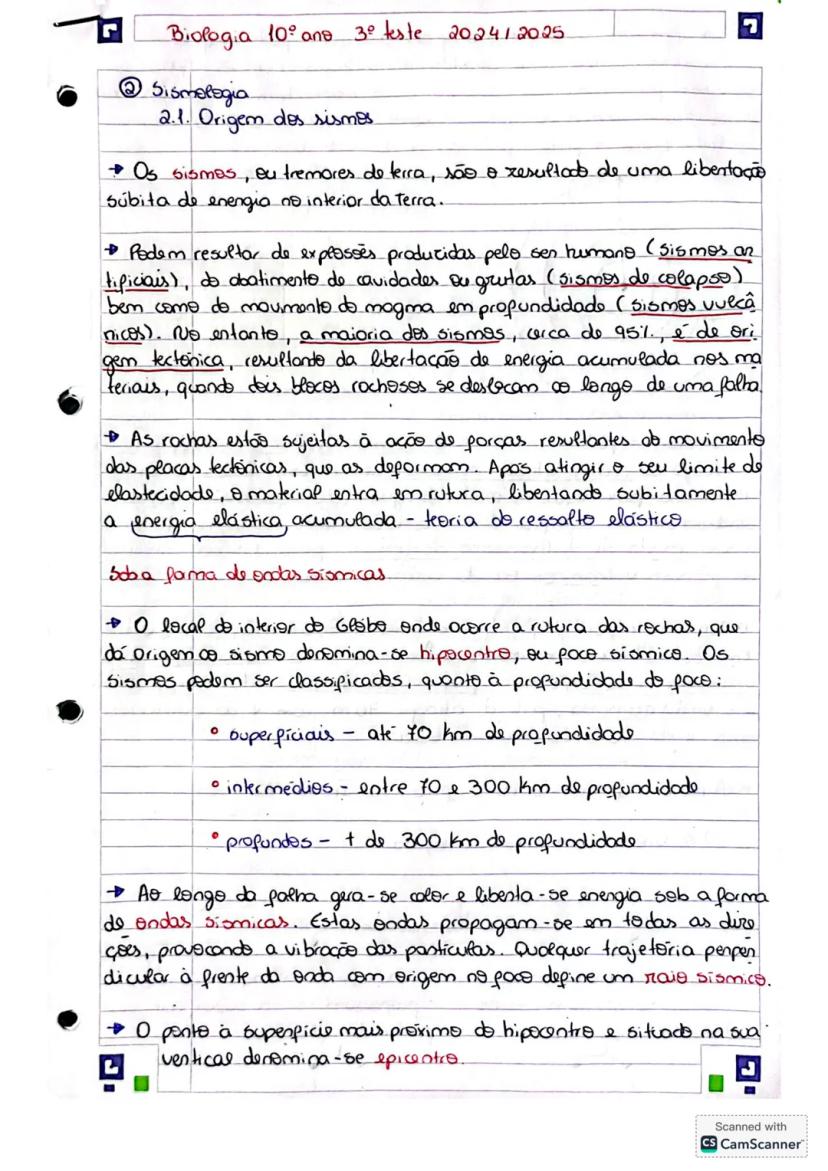 Biologia 10º ano 3º teste 2024/2025
② Sismologia
2.1. Origem dos sismos
→ Os sismos, ou tremores de terra, são o resultado de uma libertação
súbita de energia no interior da Terra.
→ Podem resultar de explosões produzidas pelo ser humano (sismos ar
tificiais), do abatimento de cavidades ou grutas (sismos de colapso)
bem como do movimento do magma em profundidade (sismos vulcâ
nicos). No entanto, a maioria dos sismos, cerca de 95%, é de ori
gem tectónica, resultando da libertação de energia acumulada nos ma
teriais, quando dois blocos rochosos se deslocam ao longo de uma falha.
→ As rochas estão sujeitas à ação de forças resultantes do movimento
das placas tectónicas, que as deformam. Após atingir o seu limite de
elastecidade, o material entra em rutura, libertando subitamente
a energia elástica acumulada - teoria do ressalto elástico
Sob a forma de ondas sísmicas
→ O local do interior do Globo onde ocorre a rutura das rochas, que
dá origem ao sismo denomina-se hipocentro, ou foco sísmico. Os
sismos podem ser classificados, quanto à profundidade do foco:
° superficiais - até 70 km de profundidade
° intermédios - entre 70 e 300 km de profundidade
° profundos - + de 300 km de profundidade
→ Ao longo da falha gera-se calor e liberta-se energia sob a forma
de ondas sísmicas. Estas ondas propagam-se em todas as dire
ções, provocando a vibração das partículas. Qualquer trajetória perpen
dicular à frente da onda com origem no foco define um raio sísmico.
→ O ponto à superfície mais próximo do hipocentro e situado na sua
vertical denomina-se epicentro.
Scanned with
CS CamScanner